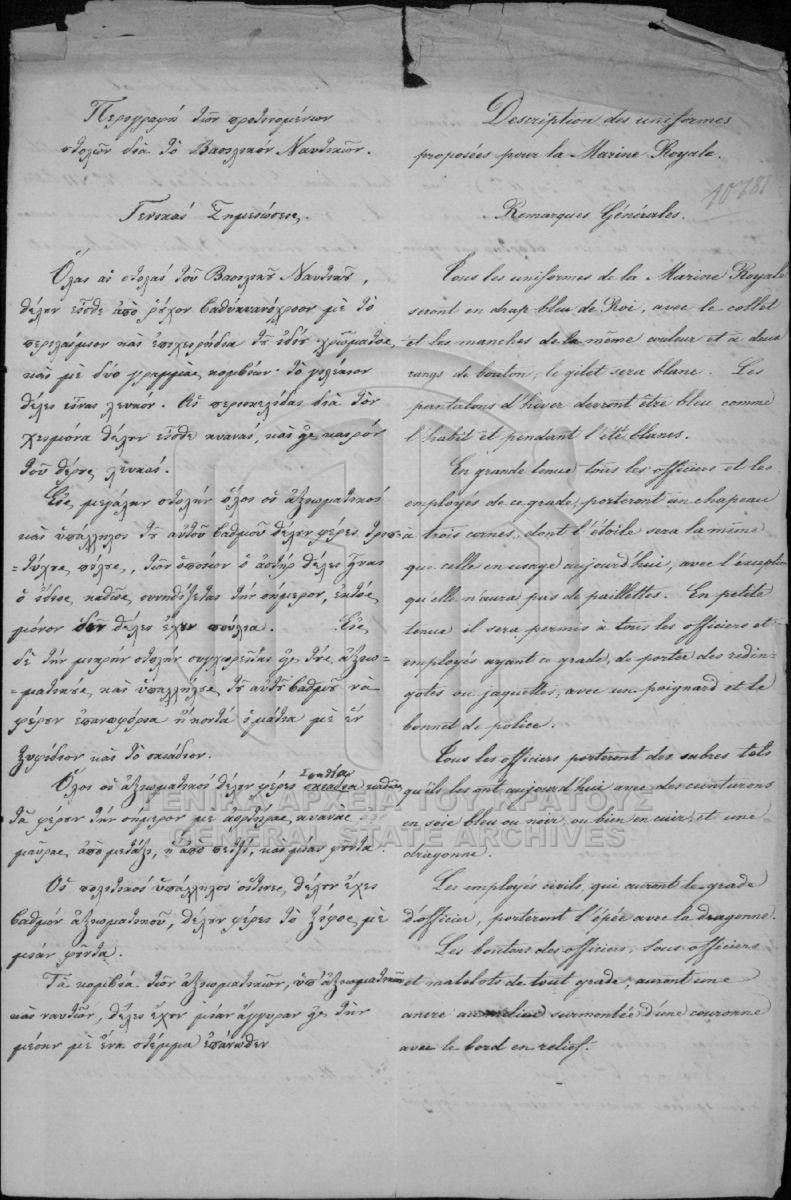 Περιγραφή τῶν προτεινομένων
στολῶν διὰ τὸ Βασιλικόν Ναυτικόν.
Γενικαί Σημειώσεις.
Ὅλαι αἱ στολαί τοῦ Βασιλικοῦ Ναυτικοῦ,
θέλουν εἶσθε ἀπό ῥοῦχον βαθυκυανόχροον μὲ τὸ
περιλαίμιον καὶ ἐπιχειρίδια τοῦ ἰδίου χρώματος,
καὶ μὲ δύο γραμμάς κομβίων· τὸ γελέκιον
θέλει εἶναι λευκόν. Αἱ περισκελίδες διὰ τὸν
χειμῶνα θέλουν εἶσθε κυαναί, καὶ εἰς καιρόν
τοῦ θέρους λευκαί.
Εἰς μεγάλην στολήν ὅλοι οἱ ἀξιωματικοί
καὶ ὑπάλληλοι τοῦ αὐτοῦ βαθμοῦ θέλουν φέρει
πίλους, τῶν ὁποίων ὁ ἀστήρ θέλει εἶναι
ὁ ἴδιος καθώς συνηθίζεται τὴν σήμερον, ἐκτός
μόνον δὲν θέλει ἔχει πούλια. Εἰς
δὲ τὴν μικρήν στολήν συγχωρεῖται εἰς τούς ἀξιω=
=ματικούς καὶ ὑπαλλήλους τοῦ αὐτοῦ βαθμοῦ νὰ
φέρουν ἐπανωφόρια ἢ κοντά ἱμάτια μὲ ἕν
ξιφίδιον καὶ τὸ σκιάδιον.
Ὅλοι οἱ ἀξιωματικοί θέλουν φέρει σπαθία καθώς
τὰ φέρουν τὴν σήμερον μὲ ἀορτῆρας κυανᾶς
μαύρας ἀπό μετάξι, ἢ ἀπό πετζί, καὶ μίαν φούντα.
Οἱ πολιτικοί ὑπάλληλοι οἵτινες θέλουν ἔχει
βαθμόν ἀξιωματικοῦ, θέλουν φέρει τὸ ξίφος μὲ
μίαν φούντα.
Τὰ κομβία τῶν ἀξιωματικῶν, ὑπ' ἀξιωματικῶν
καὶ ναυτῶν, θέλει ἔχουν μίαν ἄγκυραν εἰς τὴν
μέσην μὲ ἕνα στέμμα ἐπάνωθεν
Description des uniformes
proposées pour la Marine Royale.
10781
Remarques Générales.
Tous les uniformes de la Marine Royale
seront en drap bleu de Roi, avec le collet
et les manches de la même couleur et à deux
rangs de bouton; le gilet sera blanc. Les
pantalons d'hiver devront être bleu comme
l'habit et pendant l'été blancs.
En grande tenue tous les officiers et les
employés de ce grade, porteront un chapeau
à trois cornes, dont l'étoile sera la même
que celle en usage aujourd'hui, avec l'exception
qu'elle n'aura pas de paillettes. En petite
tenue il sera permis à tous les officiers et
employés ayant ce grade, de porter des redin-
gotes ou jaquettes, avec un poignard et le
bonnet de police.
Tous les officiers porteront des sabres tels
qu'ils les ont aujourd'hui avec des ceinturons
en soie bleu ou noir, ou bien en cuir, et une
dragonne.
Les employés civils, qui auront le grade
d'officier, porteront l'épée avec la dragonne.
Les boutons des officiers, sous-officiers
et matelots de tout grade, auront une
ancre au milieu surmontée d'une couronne
avec le bord en relief.
ΓΕΝΙΚΑ ΑΡΧΕΙΑ ΤΟΥ ΚΡΑΤΟΥΣ
GENERAL STATE ARCHIVES